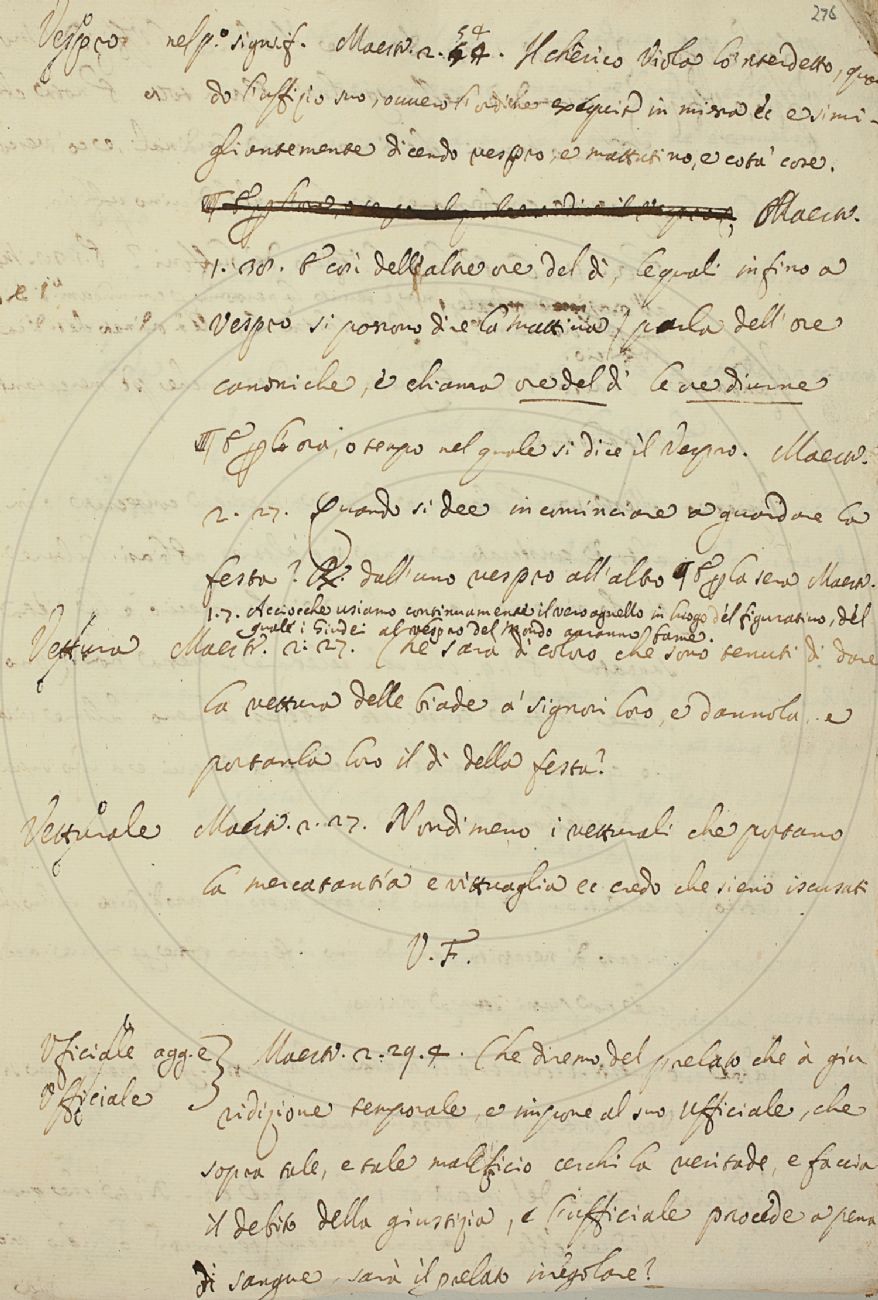 276
Vespro nel p.º signif. Maestr. 2. 54. Il chêrico viola lo 'nterdetto, quan
do l'uffizio suo, ovvero l'ordine exeguita in missa ec e simi-
gliantemente dicendo vespro, e mattutino, e cota' cose.
Maestr.
1. 38. E così dell'altre ore del dì, le quali infino a
vespro si possono dire la mattina / parla dell'ore
canoniche, e chiama ore del dì le ore diurne
¶ E per l'ora, o tempo nel quale si dice il Vespro. Maestr.
2. 27. Quando si dee incominciare a guardare la
festa? R. dall'uno vespro all'altro ¶ E per la sera Maestr.
1. 7. Acciocchè usiamo continuamente il vero agnello in luogo del figurativo, del
quale i Giudei al vespro del Mondo avranno fame.
Vettura Maestr. 2. 27. Che sarà di coloro che sono tenuti di dare
la vettura delle biade a' signori loro, e dannola, e
portanla loro il dì della festa?
Vetturale Maestr. 2. 27. Nondimeno i vetturali che portano
la mercatantìa e vittuaglia ec credo che sieno iscusati
V. F.
Uficiale agg. e Maestr. 2. 29. 4. Che diremo del prelato che à giu
Ufficiale ridizione temporale, e impone al suo Ufficiale, che
sopra tale, e tale maleficio cerchi la veritade, e faccia
il debito della giustizia, e l'ufficiale procede a pena
di sangue, sarà il prelato irregolare?